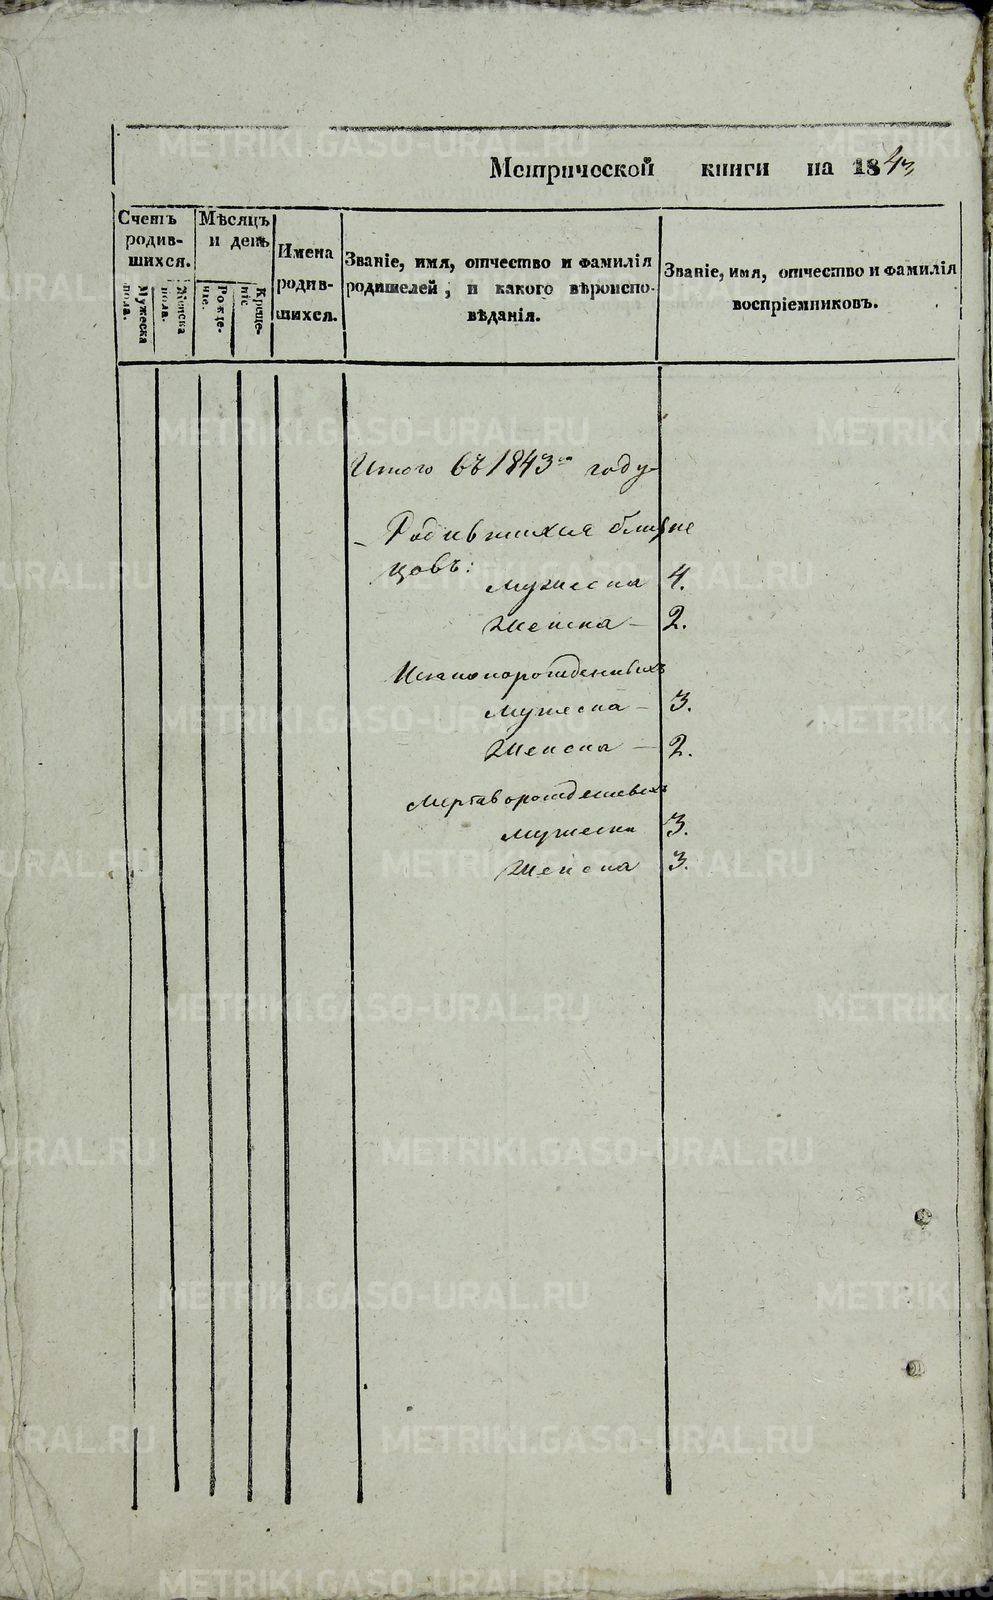 Метрической книги на 1843
Счетъ родив-шихся.
Мужеска пола.
Женска пола.
Мѣсяцъ и день
Рожде-ніе.
Креще-ніе
Имена родив-шихся.
Званіе, имя, отчество и фамилія
родителей, и какого вѣроиспо-
вѣданія.
Званіе, имя, отчество и фамилія
воспріемниковъ.
Итого въ 1843мъ году
Родившихся близне
цовъ:
Мужеска 4.
Женска – 2.
Незаконорожденныхъ
Мужеска – 3.
Женска – 2.
Мертворожденныхъ
Мужеска 3.
Женска 3.
METRIKI.GASO-URAL.RU